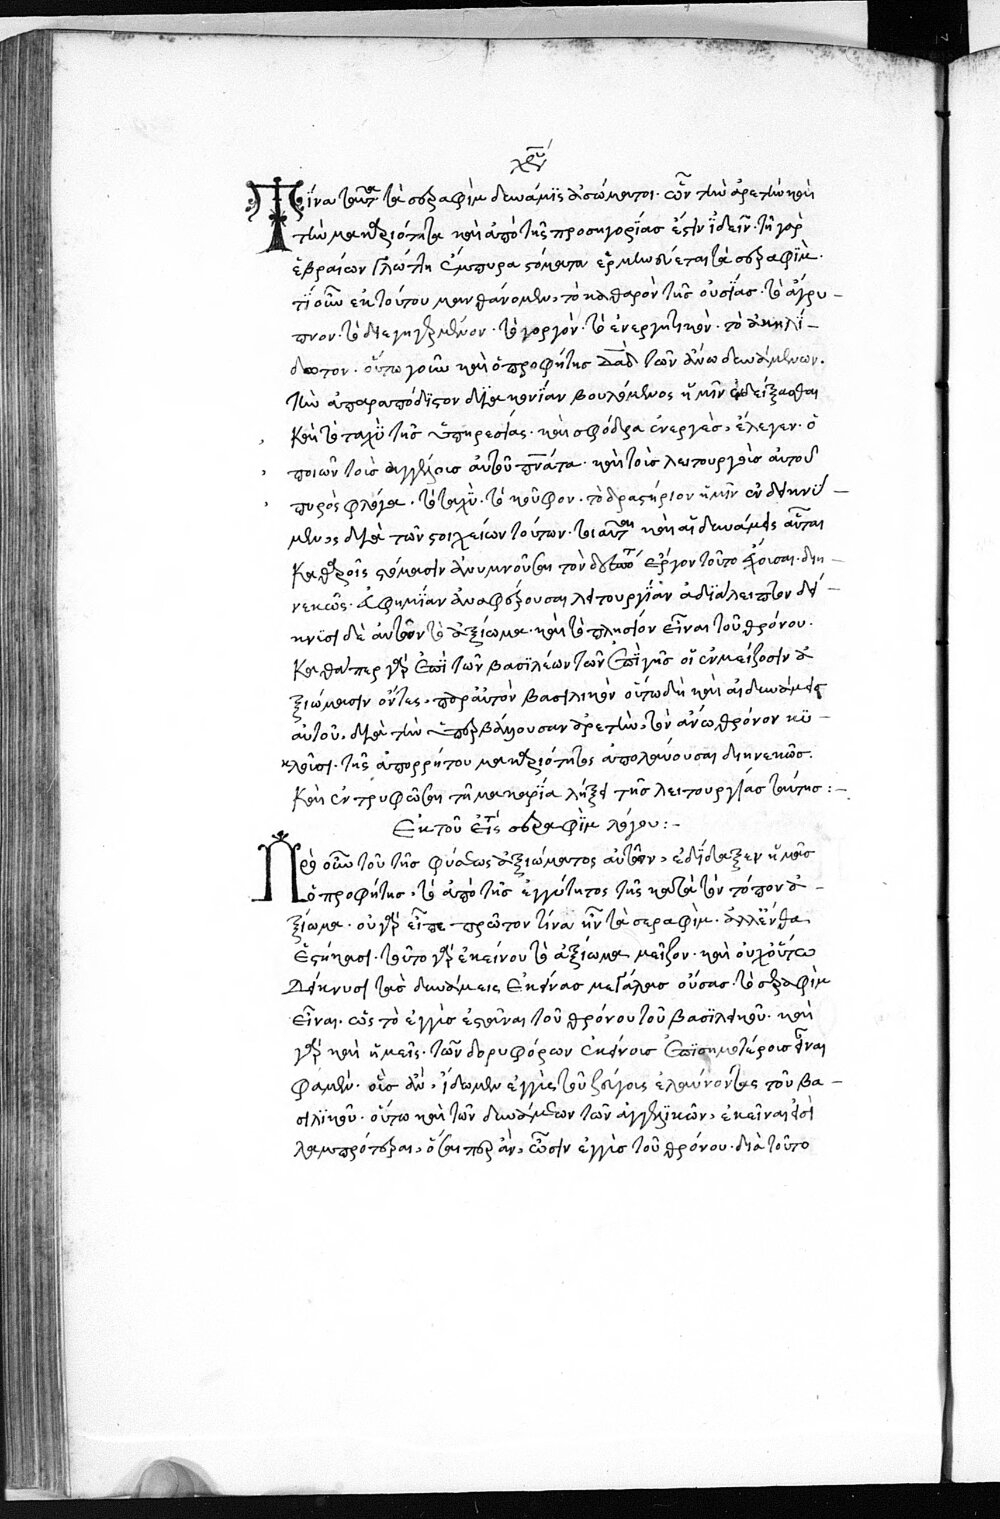 χρῡ
Τίνα ταῦτα τὰ σεραφὶμ δυνάμεις ἀσώματοι· ὧν τὴν ἀρετὴν καὶ
τὴν μακαριότητα καὶ ἀπὸ τῆς προσηγορίας ἐστὶν ἰδεῖν· τῇ γὰρ
ἑβραίων γλώττῃ ἔμπυρα στόματα ἑρμηνεύεται τὰ σεραφὶμ·
τί οὖν ἐκ τούτου μανθάνομεν, τὸ καθαρὸν τῆς οὐσίας· τὸ ἄγρυ–
πνον· τὸ διεγηγερμένον· τὸ γοργόν· τὸ ἐνεργητικόν· τὸ ἀκηλί–
δωτον· οὕτω γοῦν καὶ ὁ προφήτης δᾱδ τῶν ἄνω δυνάμεων·
τὴν ἀπαραπόδιστον διακονίαν βουλόμενος ἡμῖν ἐνδείξασθαι
καὶ τὸ ταχὺ τῆς ὑπηρεσίας· καὶ σφόδρα ἐνεργὲς, ἔλεγεν· ὁ
ποιῶν τοὺς ἀγγέλους αὐτοῦ πνᾱτα· καὶ τοὺς λειτουργοὺς αὐτοῦ
πυρὸς φλόγα· τὸ ταχὺ· τὸ κοῦφον· τὸ δραστήριον ἡμῖν ἐνδεικνύ–
μενος διὰ τῶν στοιχείων τούτων· τοιαῦται καὶ αἱ δυνάμεις αὗται
καθαροῖς στόμασιν ἀνυμνοῦσαι τὸν δεσπότην ἔργον τοῦτο ἔχουσαι διη–
νεκῶς· εὐφημίαν ἀναφέρουσαι λειτουργίαν ἀδιάλειπτον δεί–
κνυσι δὲ αὐτῶν τὸ ἀξίωμα· καὶ τὸ πλησίον εἶναι τοῦ θρόνου·
Καθάπερ γὰρ ἐπὶ τῶν βασιλέων τῶν ἐπὶ γῆς οἱ ἐν μείζοσιν ἀ
ξιώμασιν ὄντες, παρ αὐτὸν βασιλικὸν οὕτω δὴ καὶ αἱ δυνάμεις
αὐτοῦ, διὰ τὴν ὑπερβάλλουσαν ἀρετὴν, τὸν ἄνω θρόνον κυ–
κλοῦσι· τῆς ἀπορρήτου μακαριότητος ἀπολαύουσαι διηνεκῶς·
Καὶ ἐντρυφῶσαι τῇ μακαρίᾳ λήξει τῆς λειτουργίας ταύτης :–
Ἐκ τοῦ εἰς τὰ σεραφὶμ λόγου :–
Πρὸ οὖν τοῦ τῆς φύσεως ἀξιώματος αὐτῶν, ἐδίδαξεν ἡμᾶς
ὁ προφήτης, τὸ ἀπὸ τῆς ἐγγύτητος τῆς κατὰ τὸν τόπον ἀ–
ξίωμα· οὐ γὰρ εἶπε πρῶτον τίνα ἦν τὰ σεραφὶμ· ἀλλ' ἔνθα
ἑστήκασι· τοῦτο γὰρ ἐκείνου τὸ ἀξίωμα μεῖζον· καὶ οὐχ οὕτω
δείκνυσι τὰς δυνάμεις ἐκείνας μεγάλας οὔσας· τὸ σεραφὶμ
εἶναι· ὡς τὸ ἐγγὺς ἑστάναι τοῦ θρόνου τοῦ βασιλικοῦ· καὶ
γὰρ καὶ ἡμεῖς· τῶν δορυφόρων ἐκείνους ἐπισημοτέρους εἶναι
φαμὲν· οὓς ἂν, ἴδωμεν ἐγγὺς τοῦ ζεύγους ἐλαύνοντας τοῦ βα–
σιλικοῦ· οὕτω καὶ τῶν δυνάμεων τῶν ἀγγελικῶν, ἐκεῖναι εἰσὶ
λαμπρότεραι, ὅσαι περ ἂν, ὦσιν ἐγγὺς τοῦ θρόνου· διὰ τοῦτο